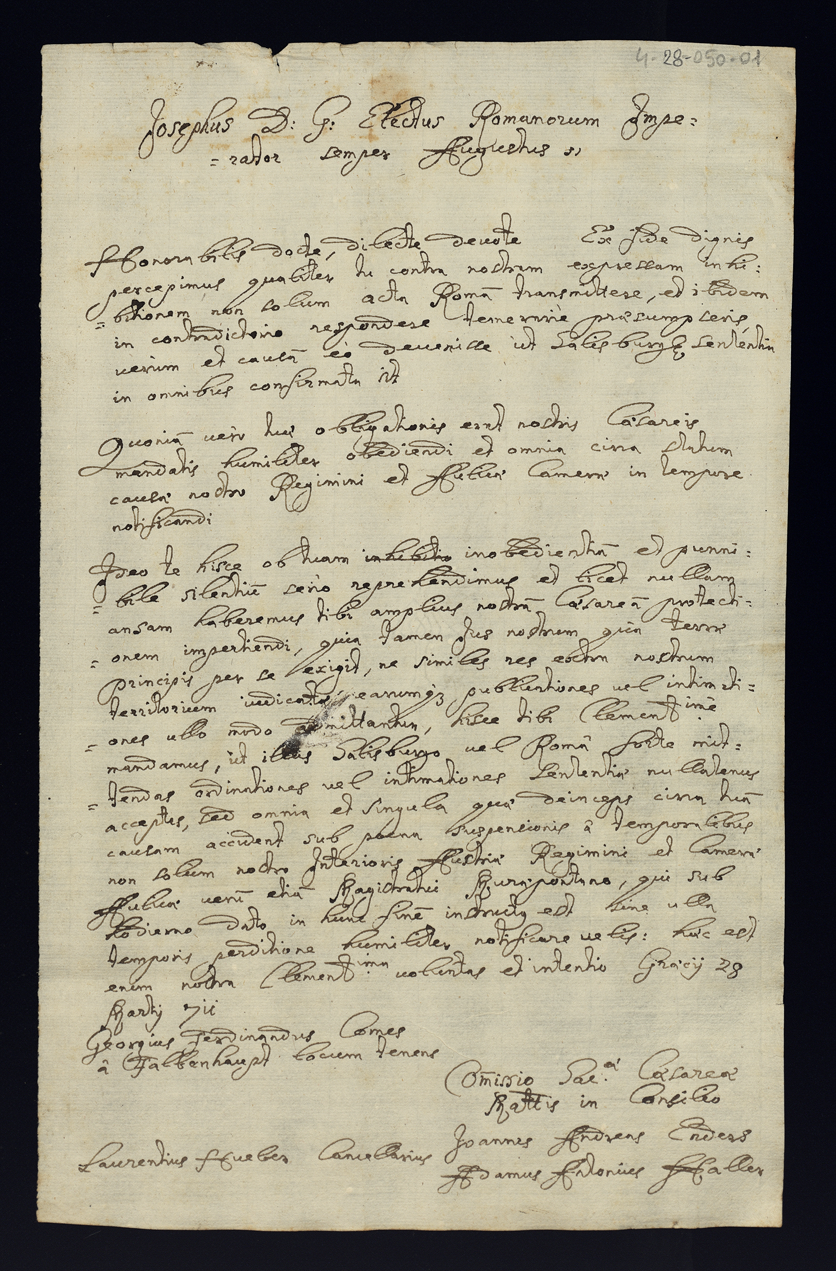 4-28-050-01
Josephus D: G: Electus Romanorum Impe=
=rator semper Augustus
Honorabilis docte, dilecte devote Ex fide dignis
percepimus qualiter tu contra nostram expressam inhi:
=bitionem non solum acta Romã transmittere, et ibidem
in contradictorio respondere temerarie præsumpseris,
verum et causã eò devenisse ut Salisburgẽ sententia
in omnibus confirmata sit
Quoniã verò tuæ obligationis erat nostris Cæsareis
mandatis humiliter obediendi et omnia circa statum
causæ nostro Regimini et Aulicæ Cameræ in tempore
notificandi
Ideo te hisce ob tuam inhibitio inobedientiã et punni:
=bile silentiũ serio reprehendimus et licet nullam
ansam haberemus tibi amplius nostrã Cæsareã protecti=
=onem impertiendi, quia tamen Jus nostrum quà terræ
principis per se exigit, ne similes res extra nostrum
territorium iudicatæ, earumq3 publicationes vel intimati=
=ones ullo modo admittantur, hisce tibi Clementimè
mandamus, ut illas Salisburgo vel Româ forte mit=
=tendas ordinationes vel intimationes sententiæ nullatenus
acceptes, sed omnia et singula quæ deinceps circa tuã
causam accident sub poena suspensionis â temporalibus
non solum nostro Interioris Austriæ Regimini et Cameræ
Aulicæ verũ etiã Magistratui Muræpontano, qui sub
hodierno dato in hunc finẽ instructq est sine ulla
temporis perditione humiliter notificare velis: hæc est
enim nostra Clementima voluntas et intentio Græcij 28
Martij 711
Georgius Ferdinandus Comes
â Falbenhaupt locum tenens
Comissio Sac:æ Cæsareæ
Mattis in Consilio
Joannes Andreas Enders
Laurentius Hueber Cancellarius
Adamus Antonius Haller